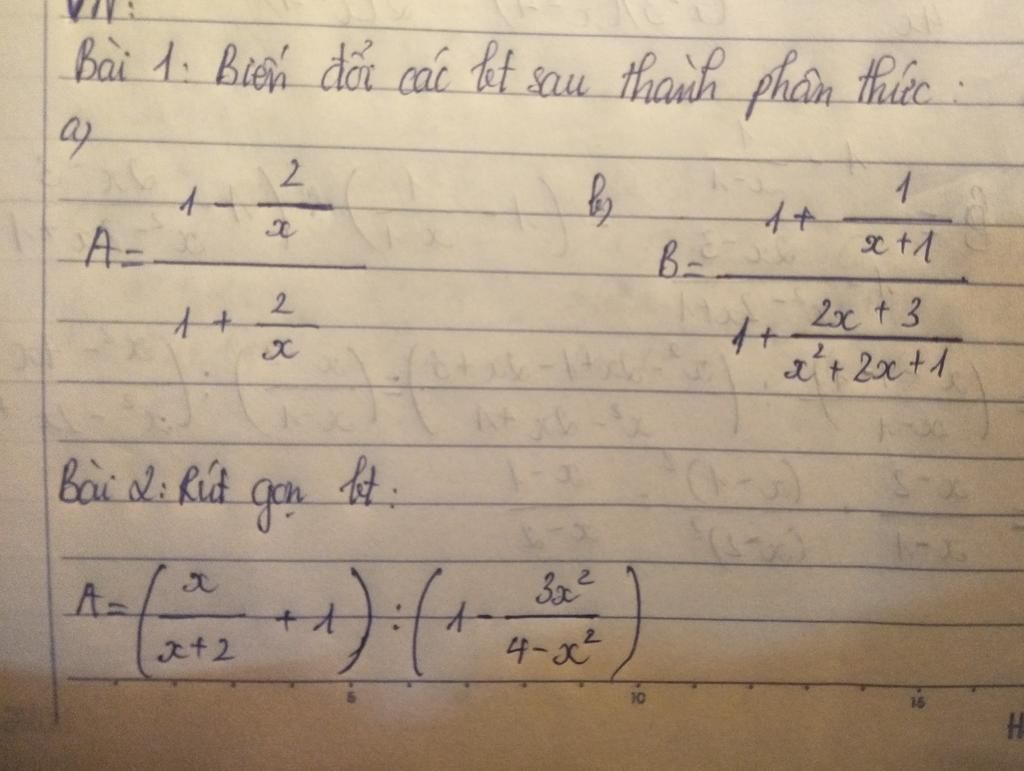 VN:
Bài 1: Biến đổi các bt sau thành phân thức:
a) A = (1 - 2/x) / (1 + 2/x)
b) B = (1 + 1/(x+1)) / (1 + (2x+3)/(x²+2x+1))
Bài 2: Rút gọn bt:
A = (x/(x+2) + 1) : (1 - 3x²/(4-x²))
5 10 15
H